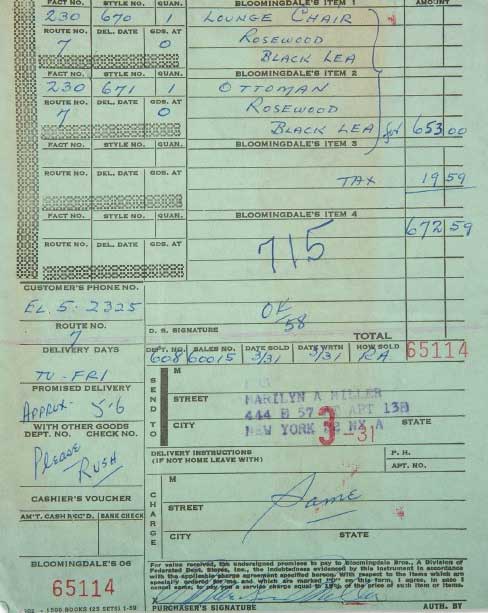 FACT NO. STYLE NO. QUAN. BLOOMINGDALE'S ITEM 1 AMOUNT
230 670 1 LOUNGE CHAIR
ROUTE NO. DEL. DATE GDS. AT ROSEWOOD
7 0 BLACK LEA
FACT NO. STYLE NO. QUAN. BLOOMINGDALE'S ITEM 2
230 671 1 OTTOMAN
ROUTE NO. DEL. DATE GDS. AT ROSEWOOD
7 0 BLACK LEA for 653 00
FACT NO. STYLE NO. QUAN. BLOOMINGDALE'S ITEM 3
ROUTE NO. DEL. DATE GDS. AT TAX 19 59
FACT NO. STYLE NO. QUAN. BLOOMINGDALE'S ITEM 4
672 59
ROUTE NO. DEL. DATE GDS. AT
715
CUSTOMER'S PHONE NO.
EL. 5-2325
OK
58
ROUTE NO.
7
D. S. SIGNATURE TOTAL
DELIVERY DAYS
TU-FRI
DEPT. NO. SALES NO. DATE SOLD DATE WRTN HOW SOLD
608 60015 3/31 3/31 RA 65114
PROMISED DELIVERY
APPROX- 5-6
SEND TO
M
STREET MARILYN A MILLER
444 E 57 ST APT 13B
CITY NEW YORK 22 NX A STATE
3-31
WITH OTHER GOODS
DEPT. NO. CHECK NO.
PLEASE
RUSH
DELIVERY INSTRUCTIONS
(IF NOT HOME LEAVE WITH)
P. H.
APT. NO.
CASHIER'S VOUCHER
AM'T. CASH REC'D. BANK CHECK
CHARGE
M
Same
STREET
CITY STATE
BLOOMINGDALE'S 06
65114
For value received, the undersigned promises to pay to Bloomingdale Bros., A Division of
Federated Dept. Stores, Inc., the indebtedness evidenced by this instrument in accordance
with the applicable charge agreement specified hereon. With respect to the items which are
specially ordered for me, and which are marked on this form, I agree, in case I
cancel same, to pay you a service charge equal to of the price of such item or items.
1500 BOOKS (25 SETS) 1-59
PURCHASER'S SIGNATURE AUTH. BY